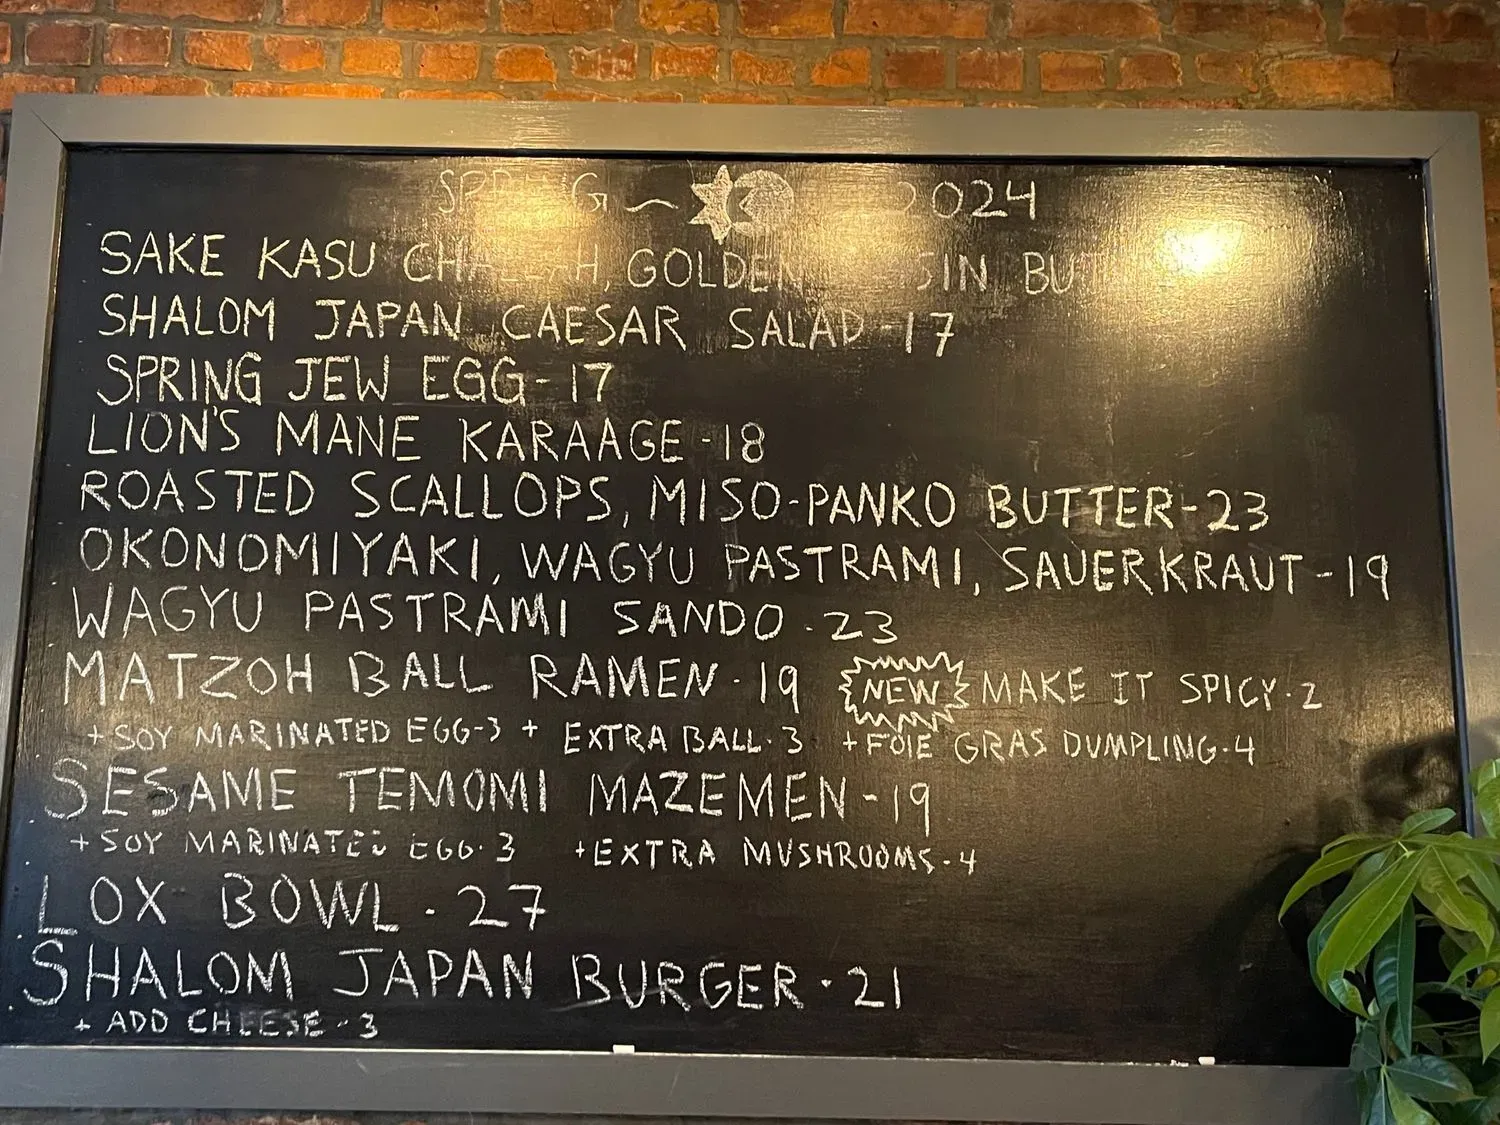 SPRING ~ 2024
SAKE KASU CHALLAH, GOLDEN
SHALOM JAPAN CAESAR SALAD -17
SPRING JEW EGG - 17
LION'S MANE KARAAGE - 18
ROASTED SCALLOPS, MISO-PANKO BUTTER - 23
OKONOMIYAKI, WAGYU PASTRAMI, SAUERKRAUT - 19
WAGYU PASTRAMI SANDO - 23
MATZOH BALL RAMEN - 19 NEW MAKE IT SPICY - 2
+ SOY MARINATED EGG - 3 + EXTRA BALL - 3 + FOIE GRAS DUMPLING - 4
SESAME TEMOMI MAZEMEN - 19
+ SOY MARINATED EGG - 3 + EXTRA MUSHROOMS - 4
LOX BOWL - 27
SHALOM JAPAN BURGER - 21
+ ADD CHEESE - 3